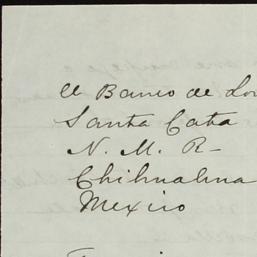 El Banco de Lon
Santa Cata
N. M. R-
Chihuahua
Mexico